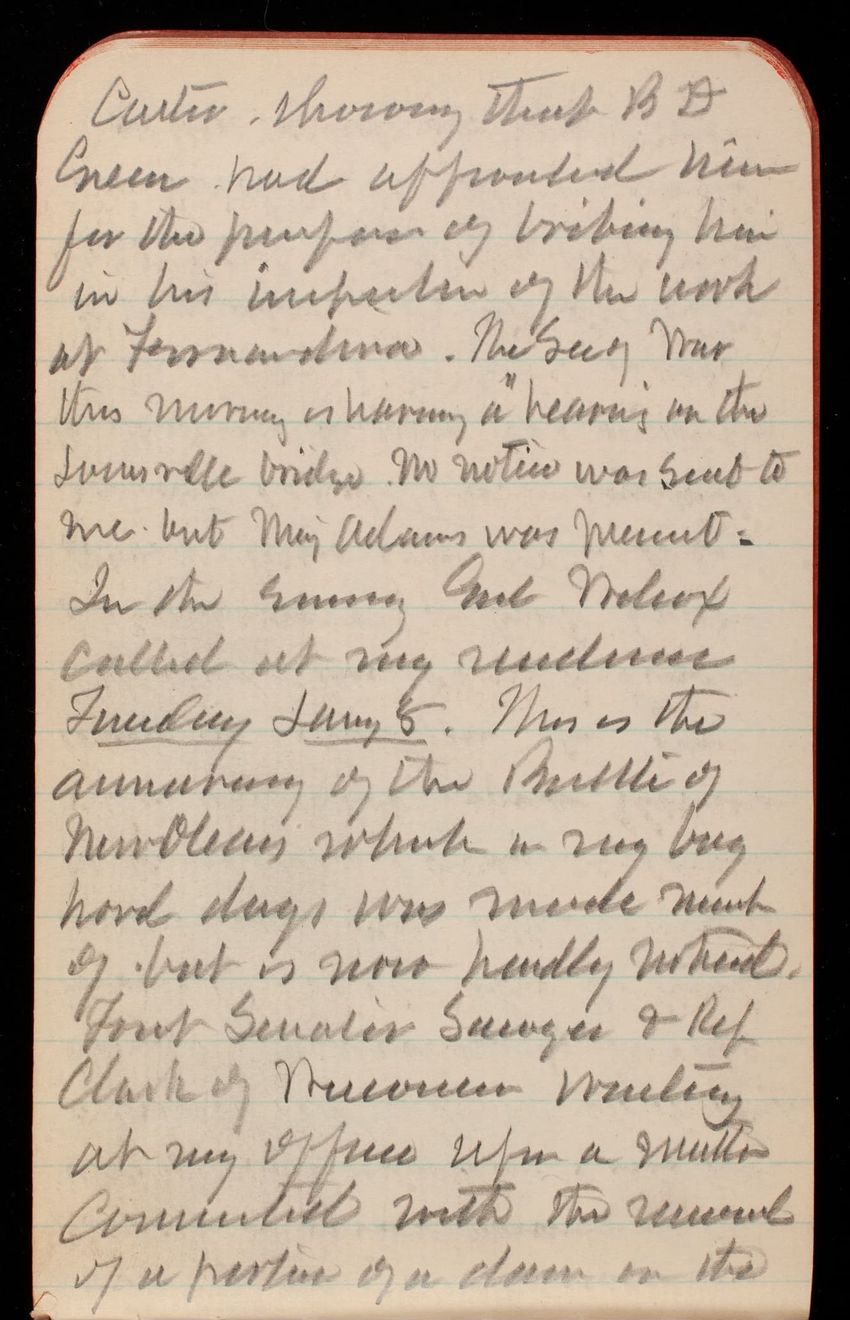 Carter, showing that B D
Green had appointed him
for the purpose of bribing him
in his inspection of the work
at Fernandina. The Secy War
this morning is having a "hearing on the
Louisville bridge. No notice was sent to
me but Maj Adams was present.
In the evening Genl Wilcox
called at my residence
Tuesday Jany 8. This is the
anniversary of the Battle of
New Orleans which in my boy
hood days was made much
of but is now hardly noticed.
Found Senator Sawyer & Rep
Clark of Wisconsin waiting
at my office upon a matter
connected with the removal
of a portion of a dam on the